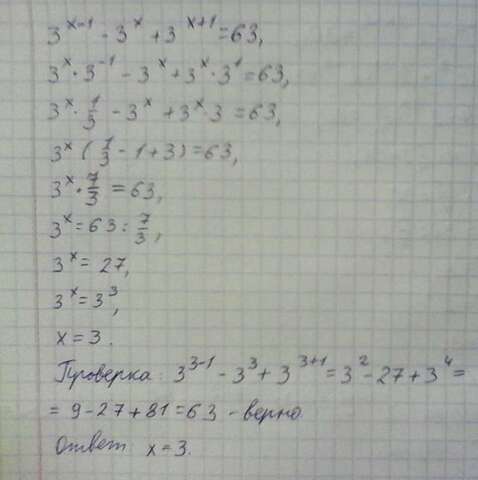 3^{x-1} - 3^x + 3^{x+1} = 63,
3^x · 3^{-1} - 3^x + 3^x · 3^1 = 63,
3^x · 1/3 - 3^x + 3^x · 3 = 63,
3^x (1/3 - 1 + 3) = 63,
3^x · 7/3 = 63,
3^x = 63 : 7/3,
3^x = 27,
3^x = 3^3,
x = 3.
Проверка: 3^{3-1} - 3^3 + 3^{3+1} = 3^2 - 27 + 3^4 =
= 9 - 27 + 81 = 63 - верно.
Ответ: x = 3.